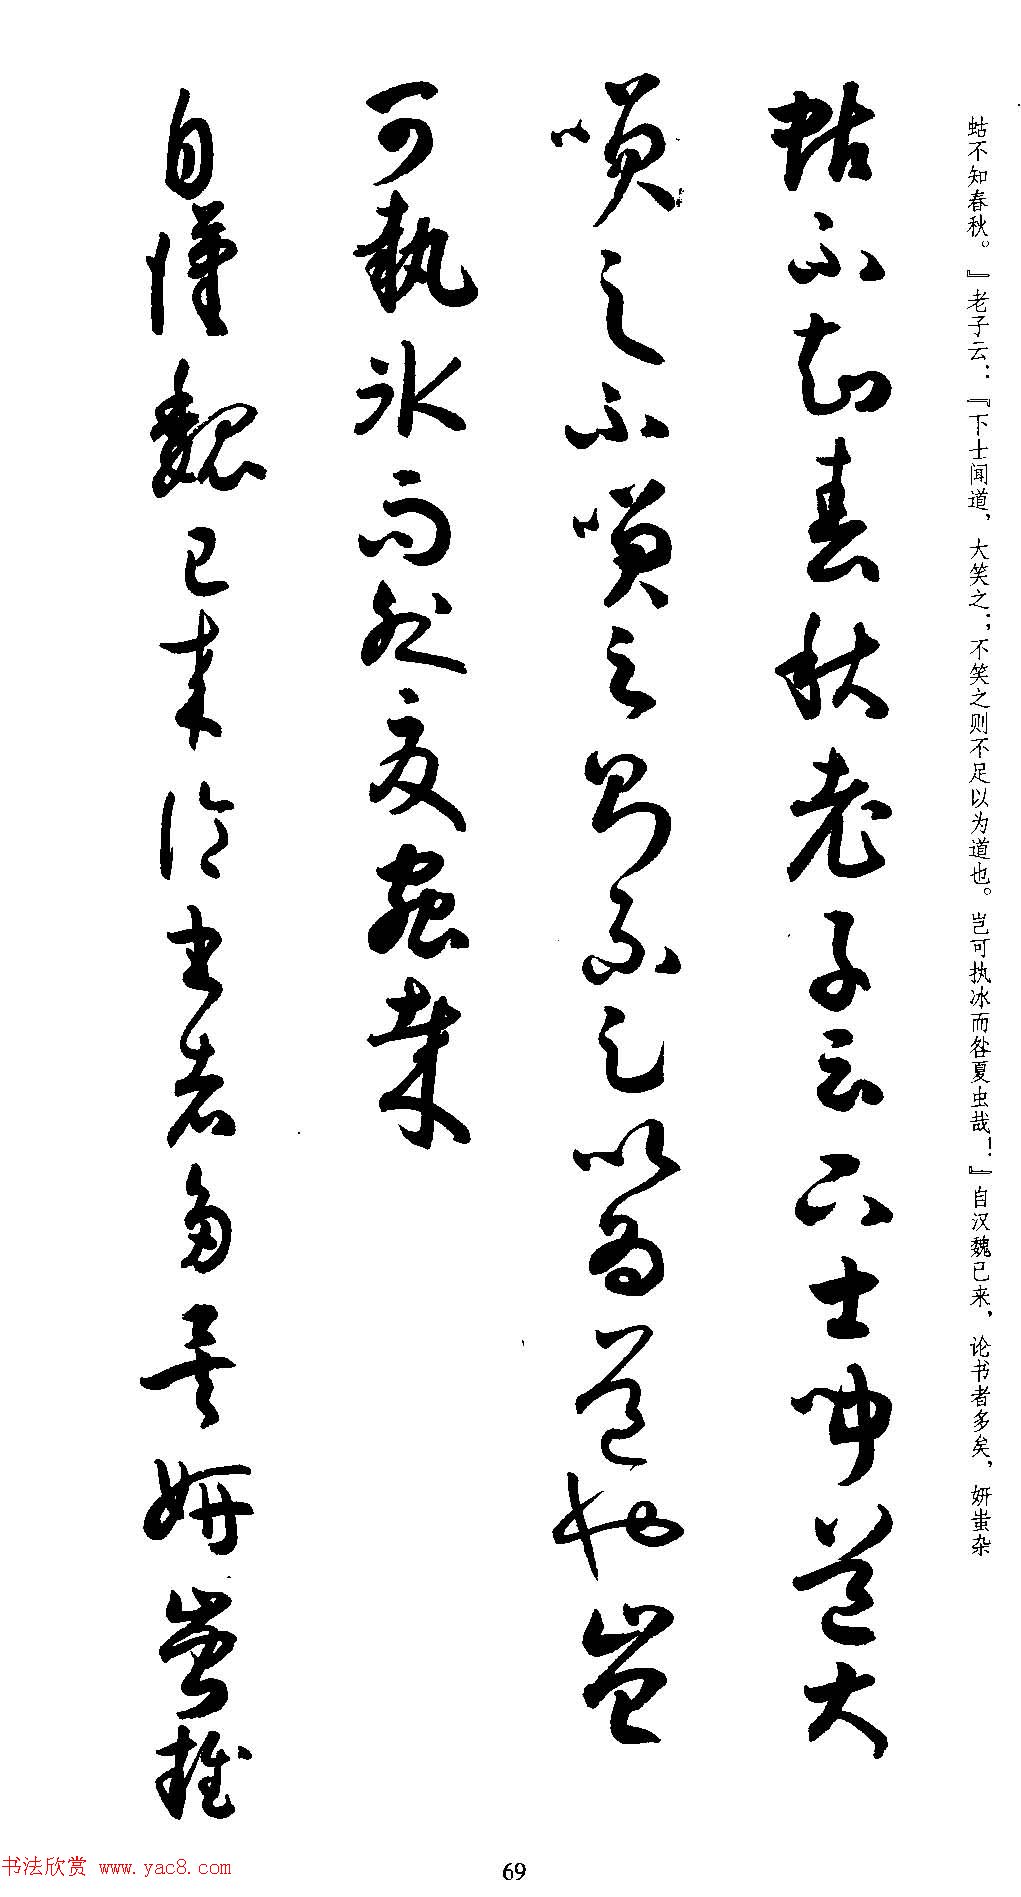 蛄不知春秋。』老子云：『下士闻道，大笑之；不笑之则不足以为道也。岂可执冰而咎夏虫哉！』自汉魏已来，论书者多矣，妍蚩杂
蛄不知春秋老子云下士聞道大
唉之不唉之則不足以為道也豈
可執冰而咎夏蟲哉
自漢魏已來論書者多矣妍蚩雜
书法欣赏 www.yac8.com
69